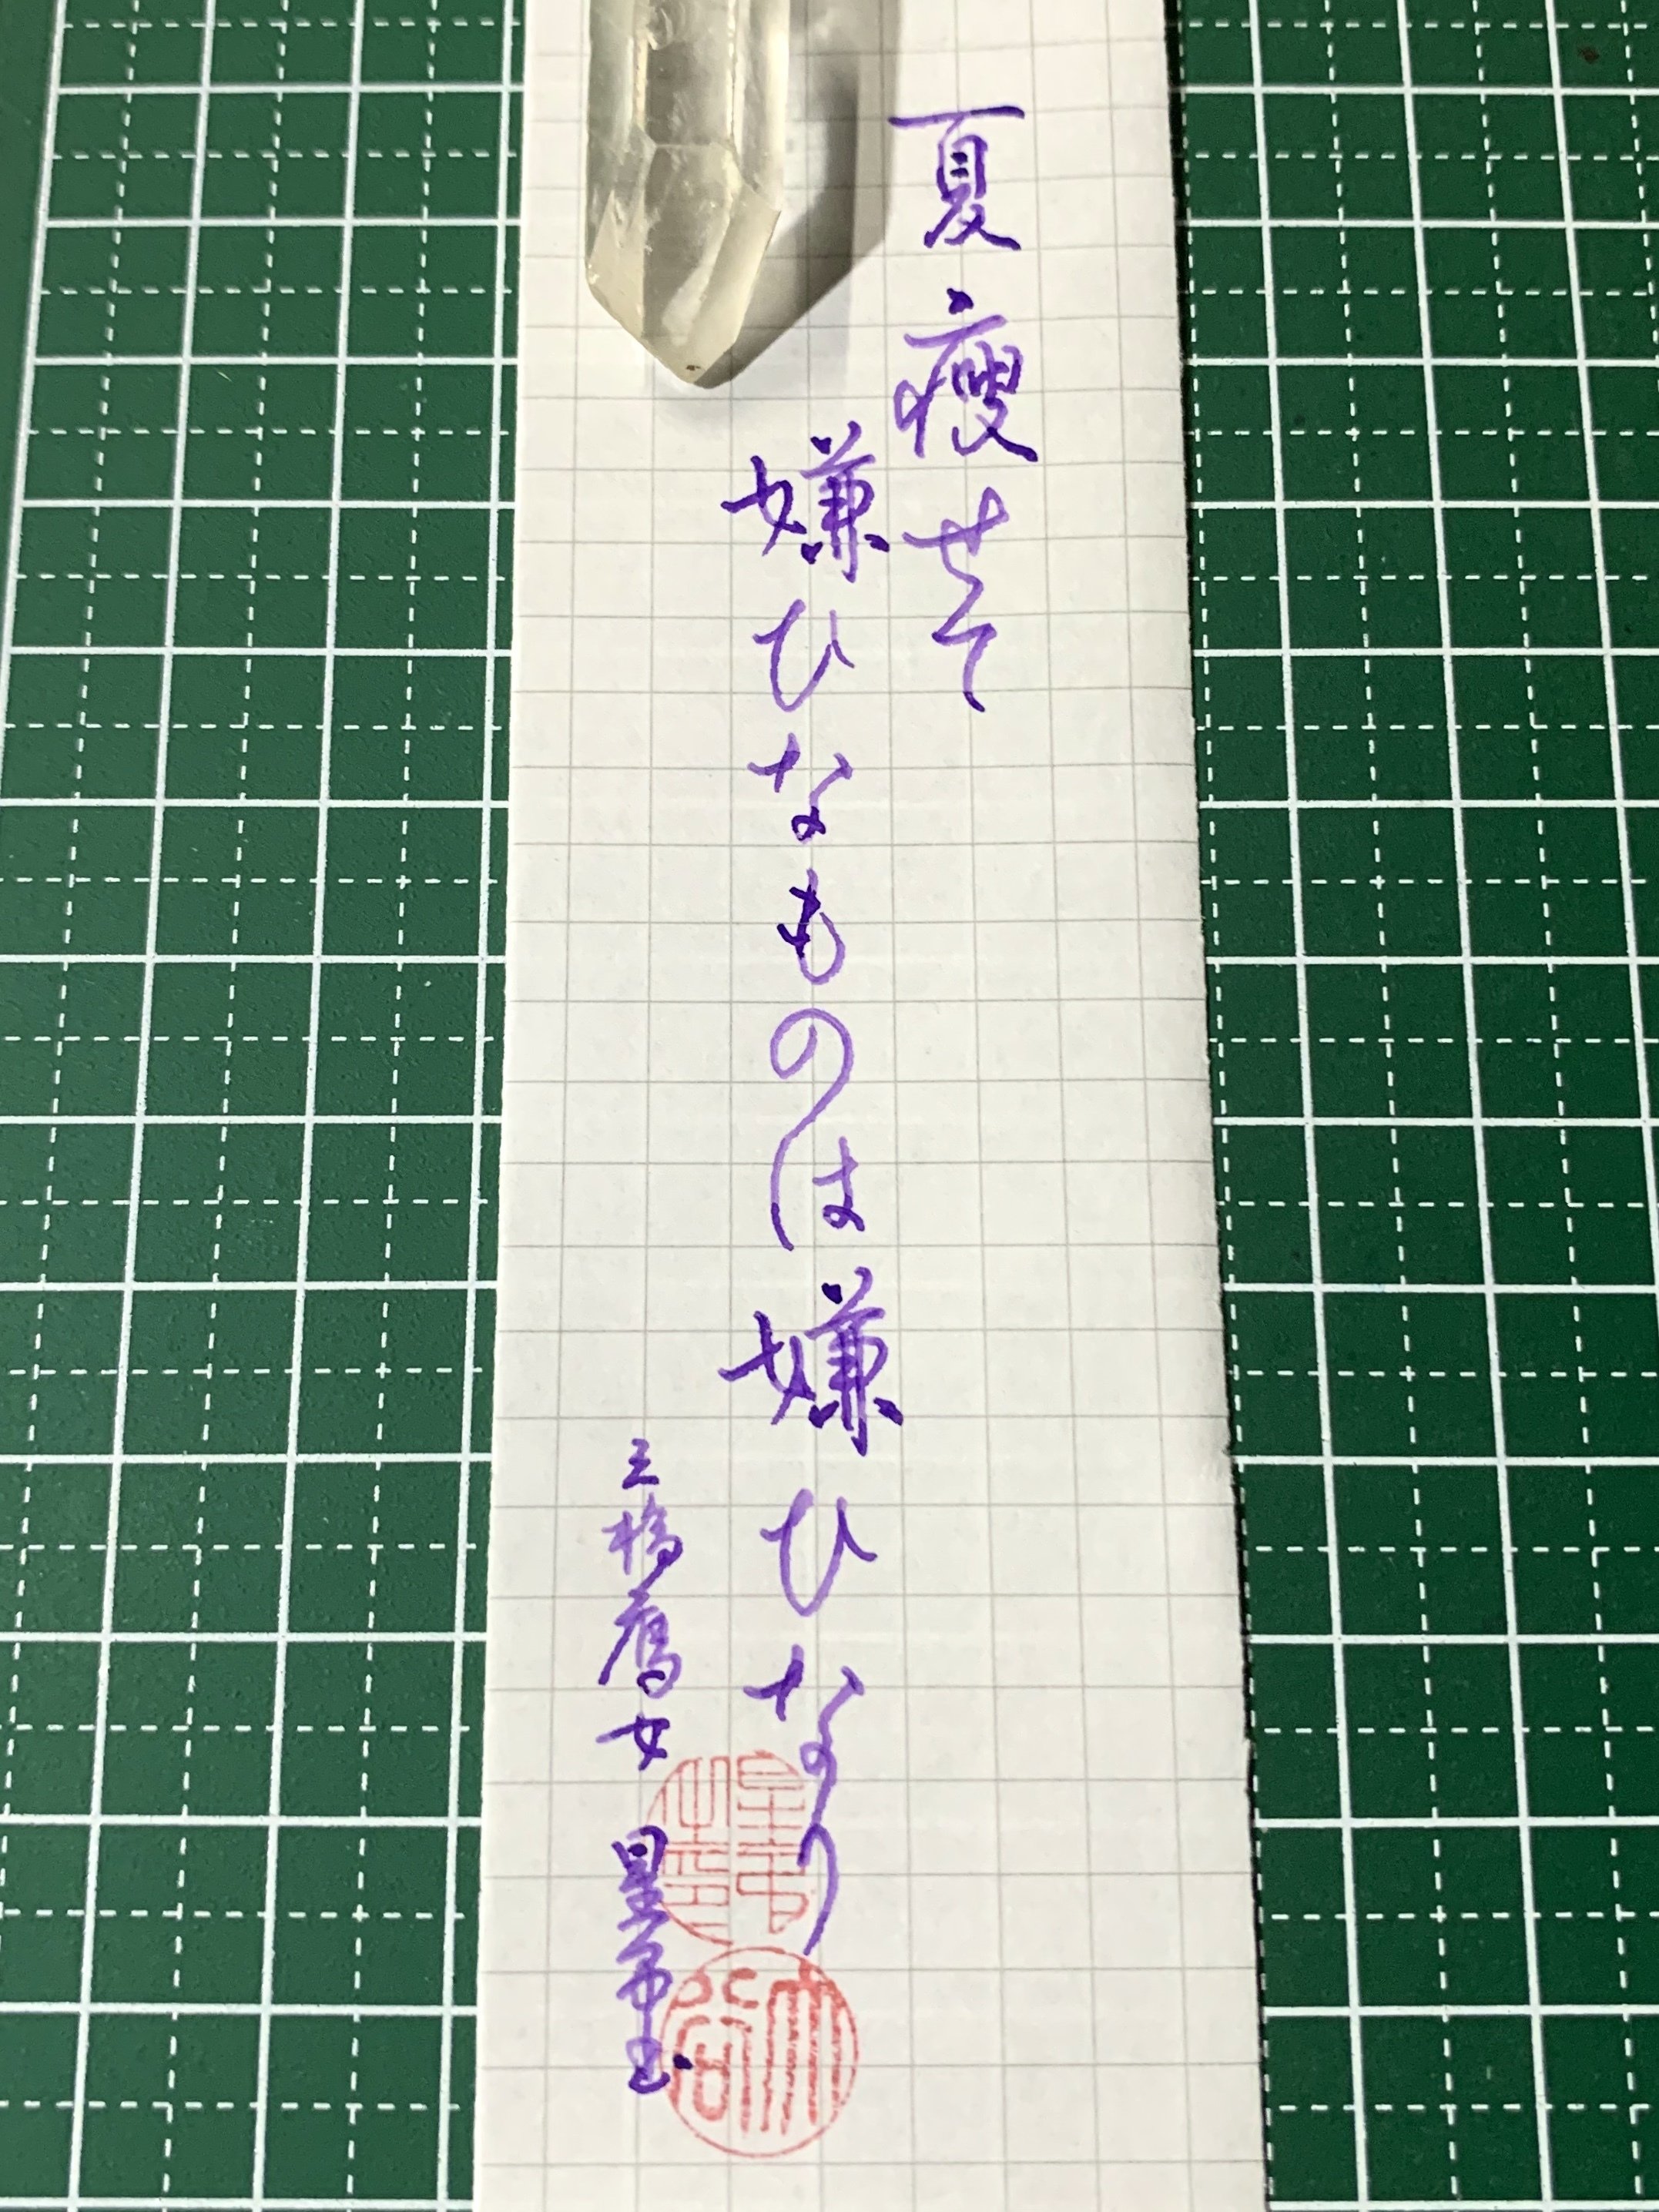 夏痩せて
嫌ひなものは嫌ひなり
三橋鷹女